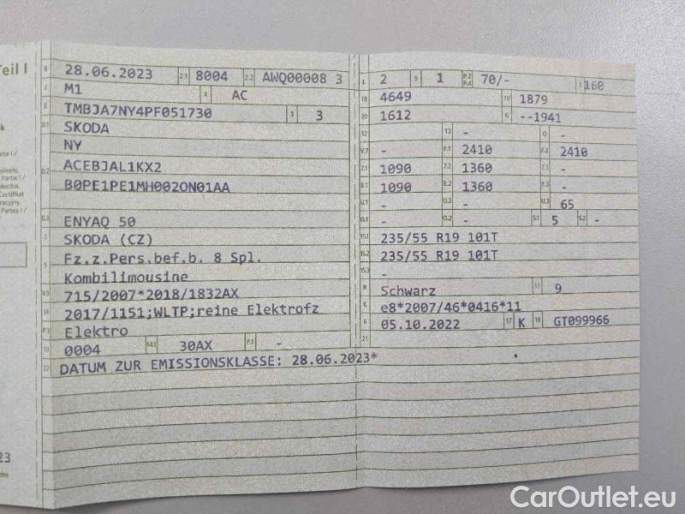 Teil I
28.06.2023 2.1 8004 2.2 AWQ00008 3
M1 AC
TMBJA7NY4PF051730 3
SKODA
NY
ACEBJAL1KX2
B0PE1PE1MH002ON01AA
ENYAQ 50
SKODA (CZ)
Fz.z.Pers.bef.b. 8 Spl.
Kombilimousine
715/2007*2018/1832AX
2017/1151;WLTP;reine Elektrofz
Elektro
0004 30AX -
DATUM ZUR EMISSIONSKLASSE: 28.06.2023*
2 1 70/- 160
4649 1879
1612 --1941
- - -
- 2410 2410
1090 1360 -
1090 1360 -
- - 65
- - 5 -
235/55 R19 101T
235/55 R19 101T
-
Schwarz 9
e8*2007/46*0416*11
05.10.2022 K GT099966
23
CarOutlet.eu